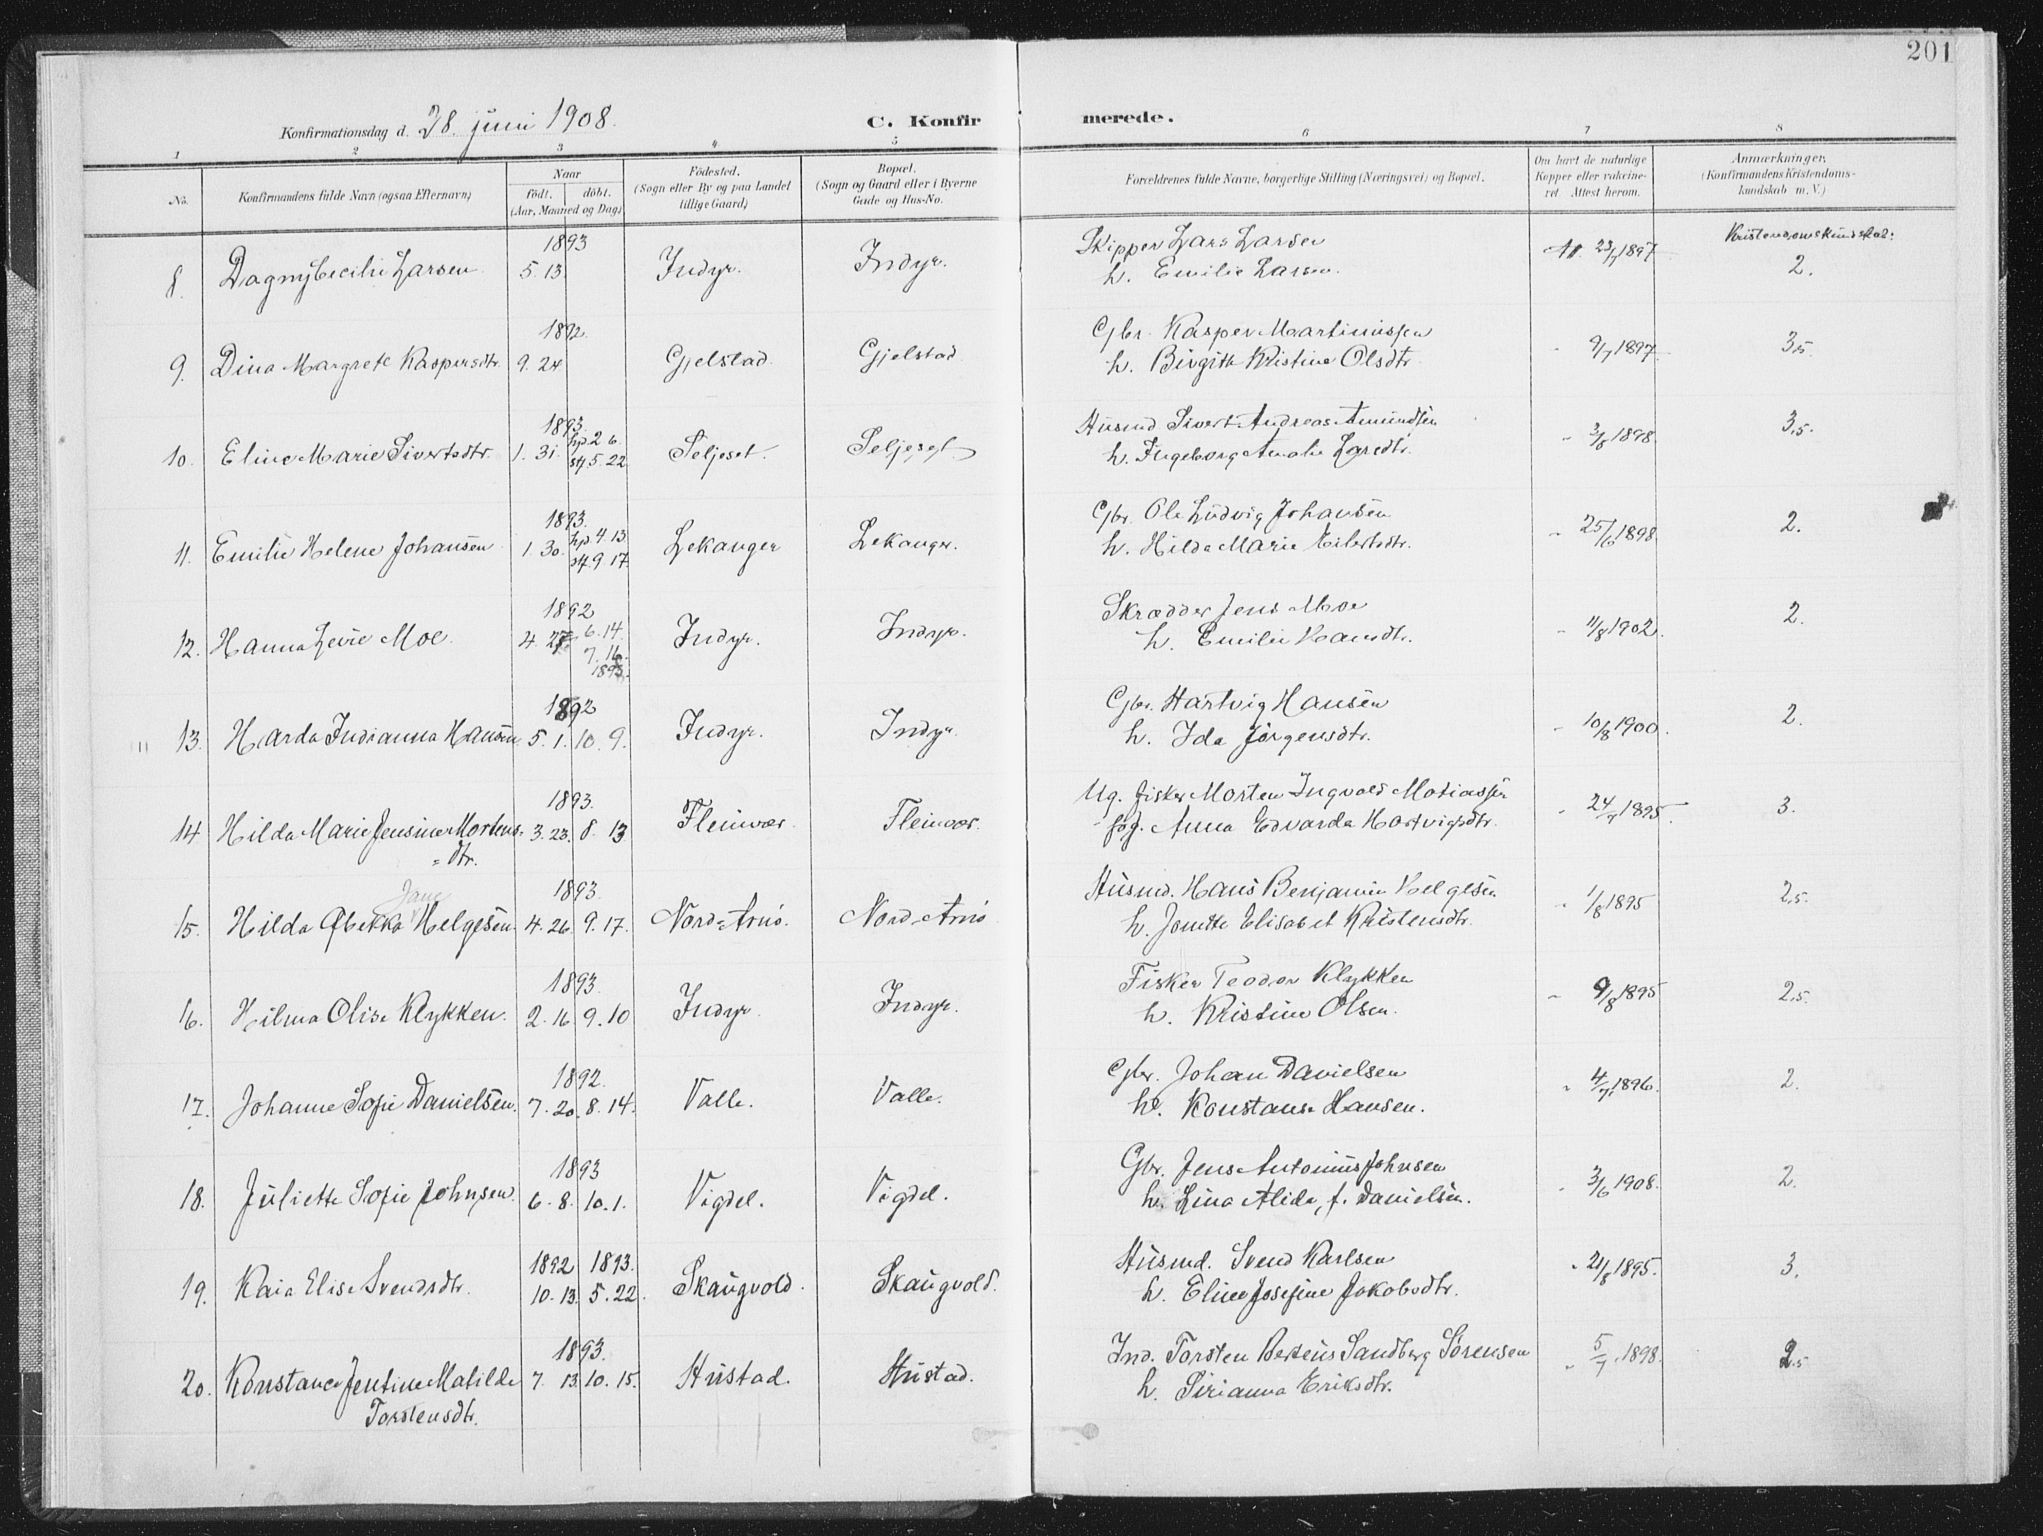 201
Konfirmationsdag d. 28. juni 1908. C. Konfirmerede.
1 2 3 4 5 6 7 8
No. Konfirmandens fulde Navn (ogsaa Efternavn) Naar født. døbt. (Aar, Maaned og Dag) Fødested. (Sogn eller By og paa Landet tillige Gaard) Bopæl. (Sogn og Gaard eller i Byerne Gade og Hus-No. Forældrenes fulde Navne, borgerlige Stilling (Næringsvei) og Bopæl. Om havt de naturlige Kopper eller vaccineret. Attest herom. Anmærkninger. (Konfirmandens Kristendomskundskab m. V.)
1893 Skipper Lars Larsen 23/7 1897 Kristendomskundskab:
8. Dagny Cecilie Larsen 5. 13. Indyr. Indyr. h. Emilie Larsen. 2.
1892 Gbr. Kasper Martinussen
9. Dina Margrete Kaspersdtr. 9. 24 Gjelstad Gjelstad h. Birgitte Kristine Olsdtr. 9/7 1897. 3,5
1893. hjd. 2 6. Husmd Sivert Andreas Amundsen
10. Eline Marie Sivertsdtr. 1. 31. stf 5. 22 Seljeset. Seljeset h. Ingeborg Amalie Larsdtr. 3/8 1898. 3,5.
1893. hjd. 4. 13 Gbr. Ole Ludvig Johansen
11. Emilie Helene Johansen 1. 30. stf. 9. 17. Lekanger Lekanger. h. Hilda Marie Eilertsdtr. 25/6 1898. 2.
1892 6. 14. Skrædder Jens Moe
12. Hanna Levie Moe. 4. 27 7. 16. 1893. Indyr. Indyr. h. Emilie Hansdtr. 11/8 1902. 2.
1892 Gbr. Hartvig Hansen
13. Harda Indianna Hansen 5. 1. 10. 9. Indyr. Indyr. h. Ida Jørgensdtr. 10/8 1900. 2.
1893. Ug. fisker Morten Ingvald Matiassen
14. Hilda Marie Jensine Mortens- 3. 23. 8. 13 Fleinvær. Fleinvær. og Anna Edvarda Hartvigsdtr. 24/7 1895. 3.
=dtr.
Jane 1893. Husmd. Hans Benjamin Helgesen
15. Hilda Helgesen. 4. 26. 9. 17. Nord-Arnø. Nord-Arnø h. Jonette Elisabet Kristensdtr. 1/8 1895 2,5.
1893. Fisker Teodor Klykken
16. Hilma Olise Klykken. 2. 16 9. 10 Indyr. Indyr. h. Kristine Olsen. 9/8 1895 2,5.
1892. Gbr. Johan Danielsen
17. Johanne Sofie Danielsen. 7. 20. 8. 14. Valle. Valle. h. Konstanse Hansen. 4/7 1896. 2.
1893 Gbr. Jens Antonius Johnsen
18. Juliette Sofie Johnsen. 6. 8. 10. 1. Vigdel. Vigdel. h. Lina Alida, f. Danielsen. 3/6 1908. 2.
1892 1893. Husmd. Svend Karlsen
19. Kaia Elise Svendsdtr. 10. 13. 5. 22. Skaugvold. Skaugvold. h. Eline Josefine Jakobsdtr. 21/8 1895. 3.
1893. Ind. Torsten Berteus Sandberg Sørensen
20. Konstance Jentine Matilde 7. 13. 10. 15. Hustad. Hustad. h. Sirianna Eriksdtr. 5/7 1898. 2,5
Torstensdtr.